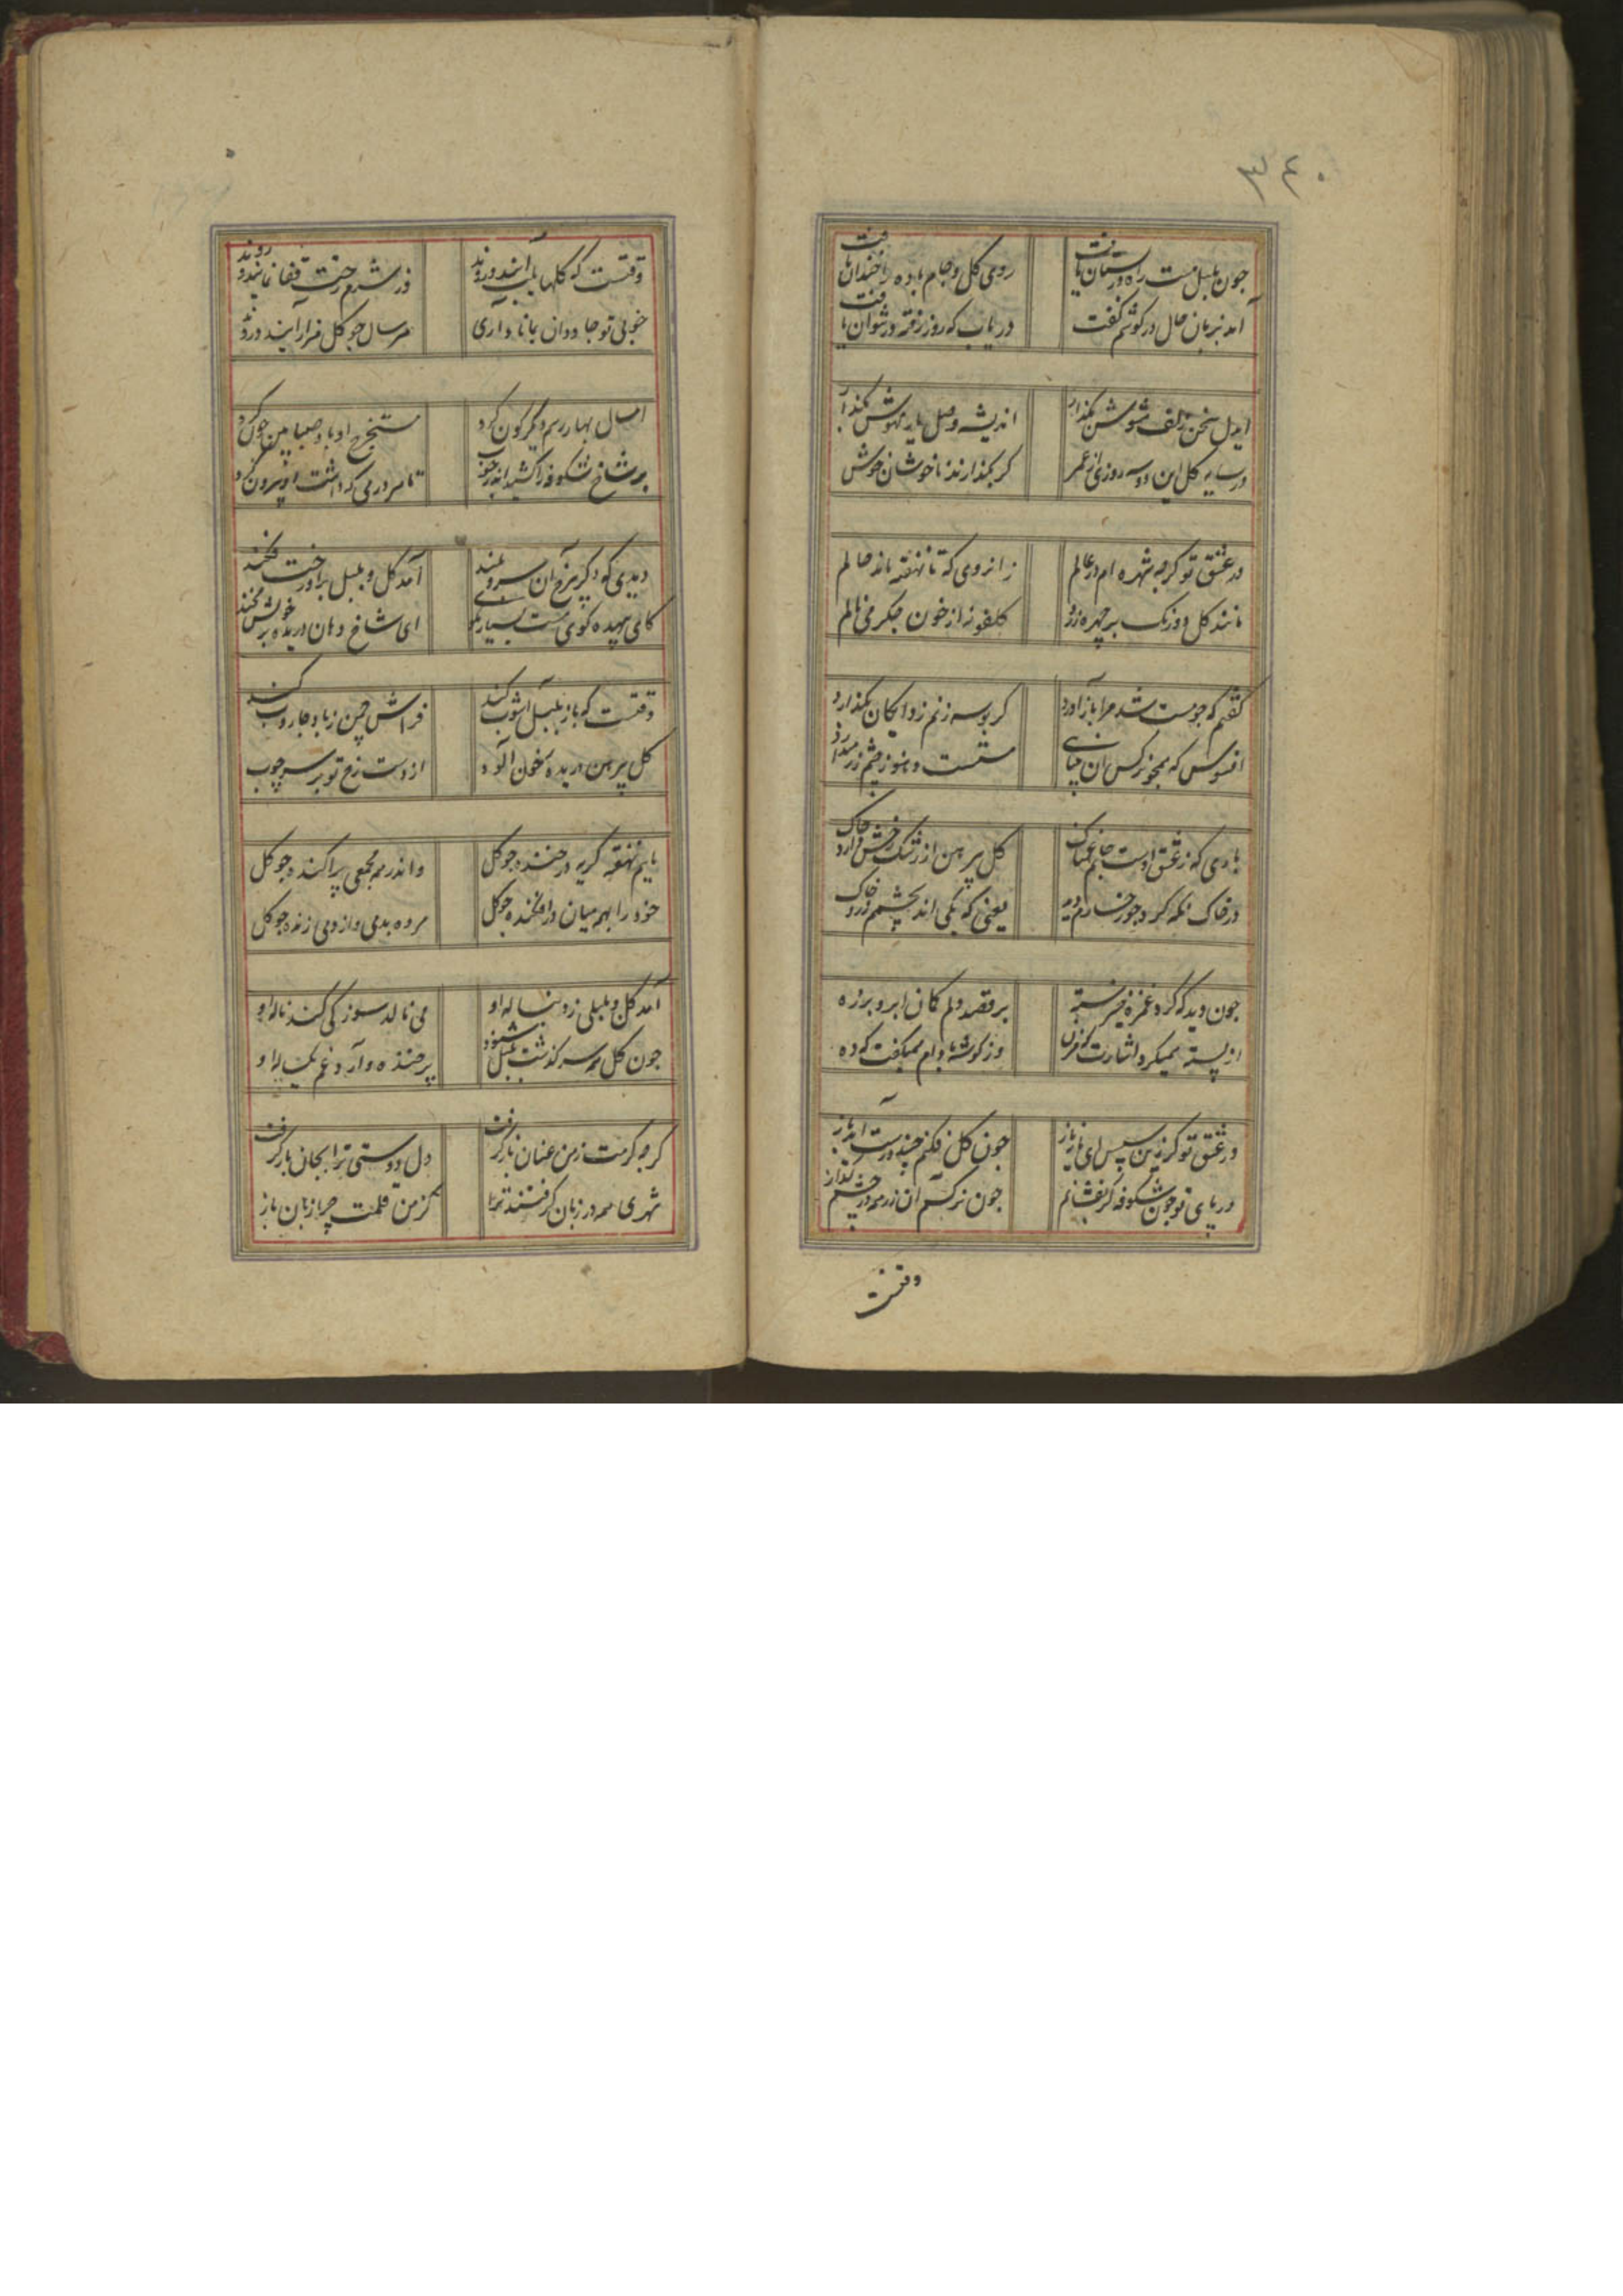 ۳۴۰
چون بلبل مست راه در بستان یافت
روی گل و جام باده را خندان یافت
آمد بزبان حال در گوشم گفت
دریاب که روز رفته در نتوان یافت
ایدل سخن زلف مشوشش بگذار
اندیشه وصل یار مهوش بگذار
در سایه گل این دو سه روزی از عمر
گر بگذارند ناخوشان خوش بگذار
در عشق تو گرچه شهره ام در عالم
زانروی که تا نهفته ماند حالم
مانند گل دو رنگ بر چهره زرد
گلغونه از خون جگر می مالم
گفتم که چو مست شد مرا باز آورد
گر بوسه زنم زدو لبکان بگذارد
افسوس که همچو نرگس آن
مستست و هنوز چشم زر میدارد
باری که ز عشق اوست جانم غمناک
گل پیرهن از رشک رخش دارد چاک
در خاک نگه کرد چو رخسارم دید
یعنی که یکی اند بچشمم زر و خاک
چون دید که کرد غمزه خیره
بر قصد دلم کمان ابرو بزه
از پسته همیکرد اشارت که مزن
وز گوشه بادام همیگفت که ده
در عشق تو گر زین سپس ای مایه ناز
چون گل فکنم چند درست اندر باز
در پای تو چون شکوفه گر نفشانم
چون نرگس آن زر همه در چشم انداز
وقتست
وقتست که گلها بلب آیند و روند
وز شرم رخت قفا نمایند و روند
خوبی تو جاودان بمانا و اری
هر سال چو گل هزار آیند و روند
امسال بهار رسم دیگرگون کرد
مستخرج او باد صبا بین چون کرد
بر شاخ شکوفه را کشید اندر چوب
تا هر درمی که داشت او بیرون کرد
دیدی که دگر بر رخ آن سرو بلند
آمد گل و بلبل بر درخت فکند
کای بیهده گوی مست بسیار مگوی
ای شاخ دهان دریده بر خویش مخند
وقتست که باز بلبل آشوب کند
فراش چمن ز باد جاروب کند
گل پیرهن دریده خون آلود
از دست رخ تو بر سر چوب
مایم نهفته گریه در خنده چو گل
واندر همه جمعی پراکنده چو گل
خود را بهمه میان در افکنده چو گل
مرده بدمی وز دمی زنده چو گل
آمد گل و بلبلی ز دنباله او
می نالد سوز کی کند ناله او
چون گل همه سرگذشت بلبل بشنود
پر خنده و آرد غم یکساله او
گرچه گرمت ز من عنان باز گرفت
دل دوستی ترا بجان باز گرفت
شهری همه در زبان گرفتند ترا
کز من قلمت چرا زبان باز